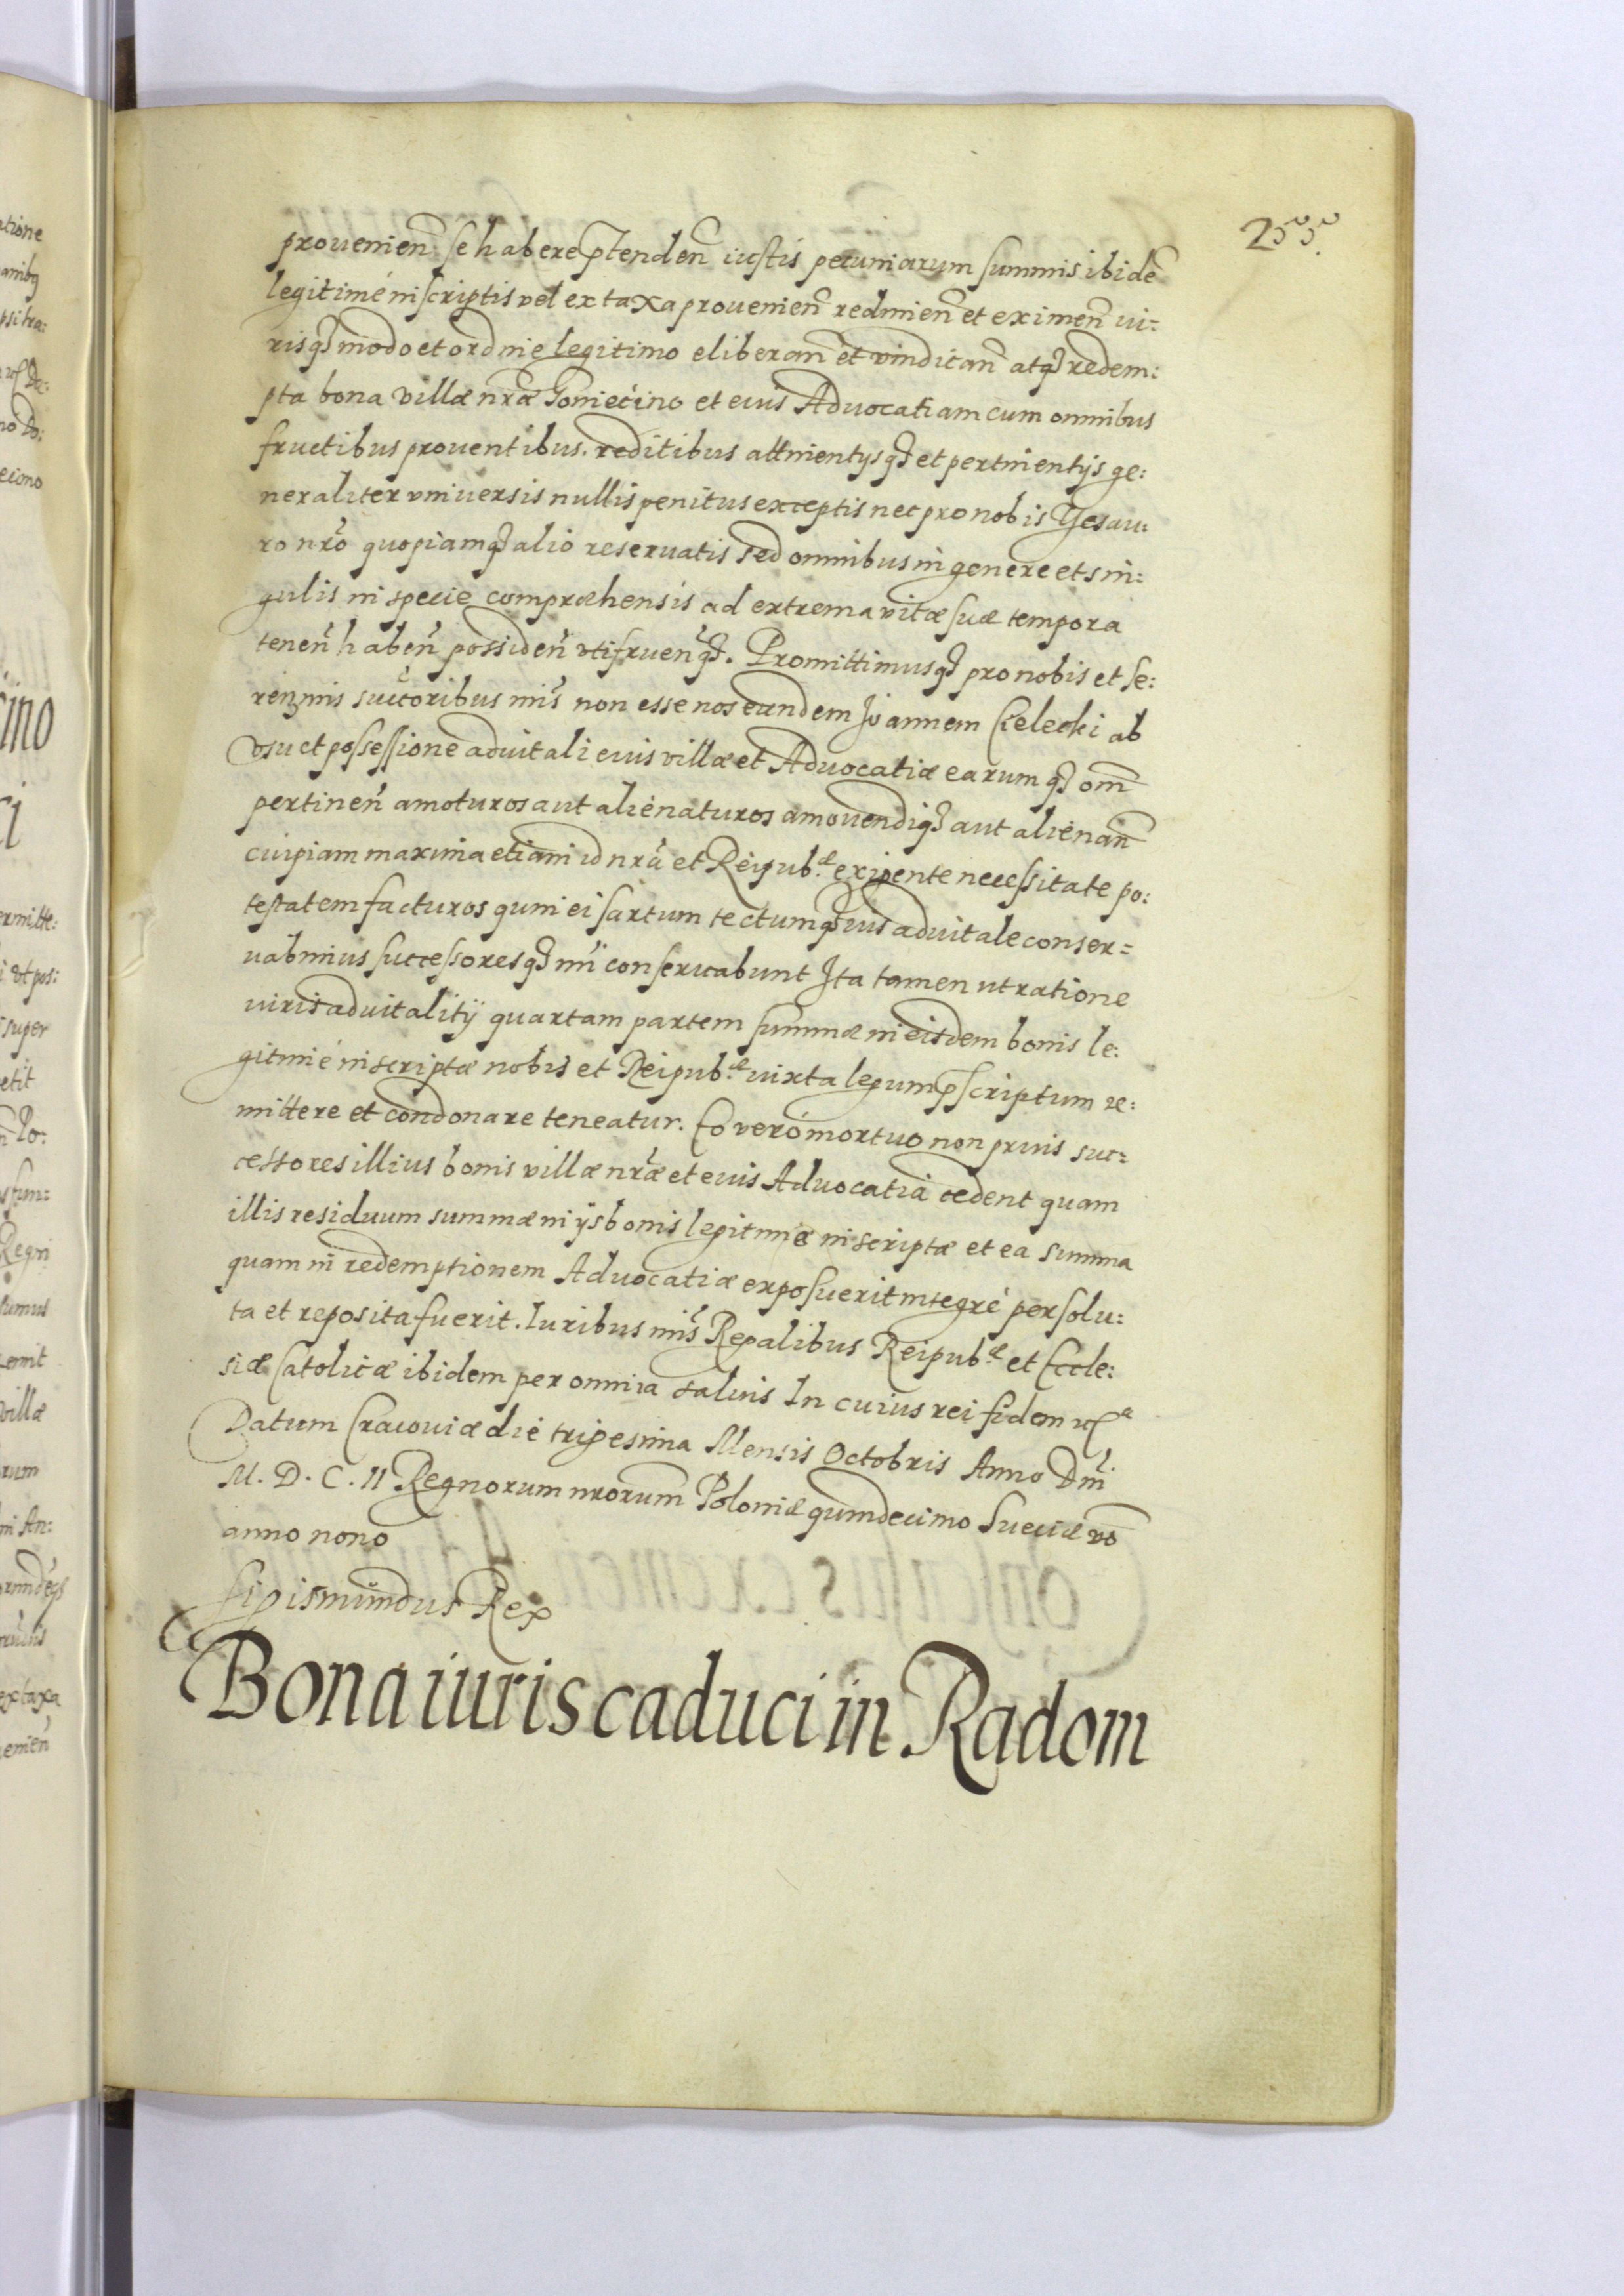 233.
prouenien̄ se habere p̄tenden̄ iustis pecuniarum summis ibidē
legitimé inscriptis vel ex taxa prouenien̄ redimien̄ et eximen̄ iu:
risq̢ modo et ordine legitimo eliberan̄ et vindican̄ atq̢ redem:
pta bona villæ nr̃æ Goniecino et eius Aduocatiam cum omnibus
fructibus prouentibus. reditibus attinentÿsq̢ et pertinentÿs ge:
neraliter vniuersis nullis penitus exceptis nec pro nobis Tesau:
ro nr̃o quopiamq̢ alio reseruatis sed omnibus in genere et sin:
gulis in specie compræhensis ad extrema vitæ suæ tempora
tenen̄ haben̄ possiden̄ vtifruen̄q̢. Promittimusq̢ pro nobis et se:
renz̃mis succoribus nrĩs non esse nos eundem Joannem Cielecki ab
vsu et possessione aduitali eius villæ et Aduocatiæ earumq̢ om̄
pertinen̄ amoturos aut alienaturos amouendiq̢ aut alienan̄
cuipiam maxima etiam id nr̃a et Reipub:æ exigente necessitate po:
testatem facturos quin ei sartum tectumq̢ ius aduitale conser=
uabimus successoresq̢ nrĩ conseruabunt Ita tamen ut ratione
iuris aduitalitÿ quartam partem summæ in eisdem bonis le:
gitimé inscriptæ nobis et Reipub:æ iuxta legum p̄scriptum re:
mittere et condonare teneatur. Eo veró mortuo non prius suc:
cessores illius bonis villæ nr̃æ et eius Aduocatia cedent quam
illis residuum summæ in ÿs bonis legitimé inscriptæ et ea summa
quam in redemptionem Aduocatiæ exposuerit integré persolu:
ta et reposita fuerit. Iuribus nrĩs Regalibus Reipub:æ et Eccle:
siæ Catolicæ ibidem per omnia saluis In cuius rei fidem
Datum Cracouiæ die trigesima Mensis Octobris Anno Dnĩ.
M. D. C. II Regnorum nrorum Poloniæ quindecimo Sueciæ vō
anno nono
Sigismundus Rex
Bona iuris caduci in Radom